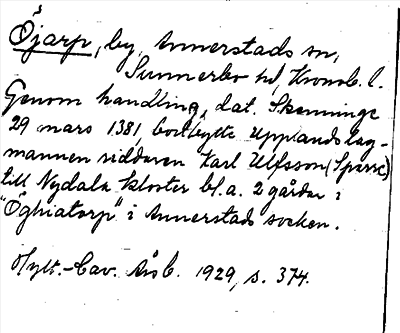 Öjarp, by, Annerstads sn,
Sunnerbo hd, Kronob. l.
Genom handling, dat. Skenninge
29 mars 1381, bortbytte Upplandslag-
mannen riddaren Karl Ulfsson (Sparre)
till Nydala kloster bl.a. 2 gårdar i
"Öghiatorp" i Annerstads socken.
Hylt.-Cav. Årsb. 1929, s. 374.